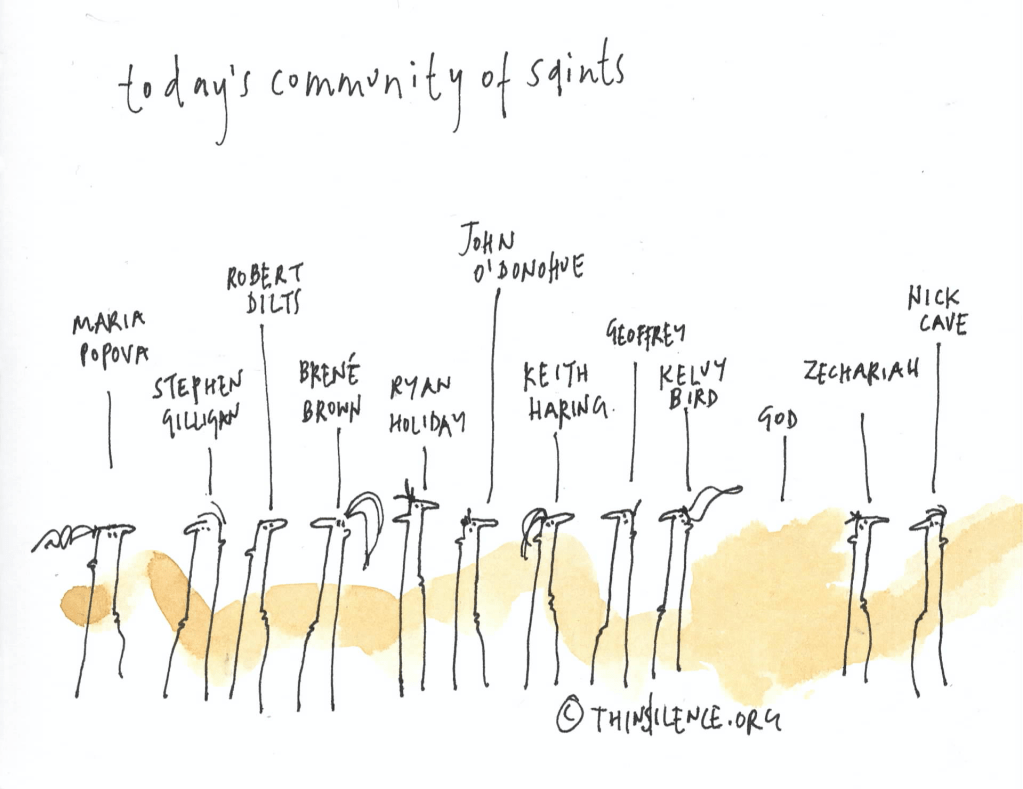 today's community of saints
MARIA
POPOVA
STEPHEN
GILLIGAN
ROBERT
DILTS
BRENÉ
BROWN
RYAN
HOLIDAY
JOHN
O'DONOHUE
KEITH
HARING.
GEOFFREY
KELVY
BIRD
GOD
ZECHARIAH
NICK
CAVE
© THINSILENCE.ORG